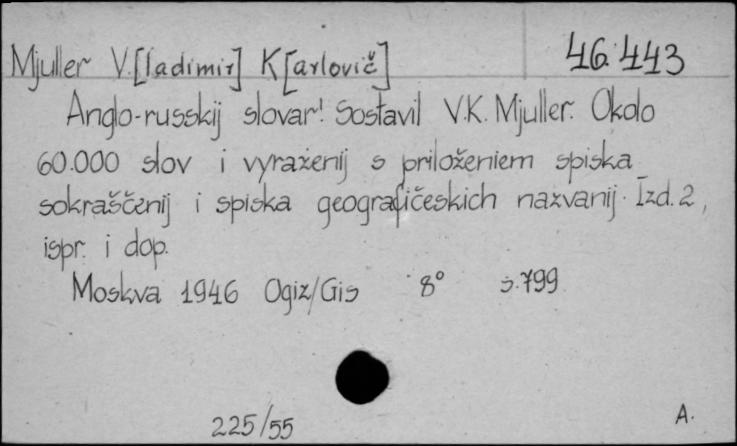 Mjuller V.[ladimir] K[arlovič] 46.443
Anglo-russkij slovar'. Sostavil V.K. Mjuller. Okolo
60.000 slov i vyraženij s priloženiem spiska
sokraščenij i spiska geografičeskich nazvanij. Izd. 2,
ispr. i dop.
Moskva 1946 Ogiz/Gis 8° s.799
225/55 A.